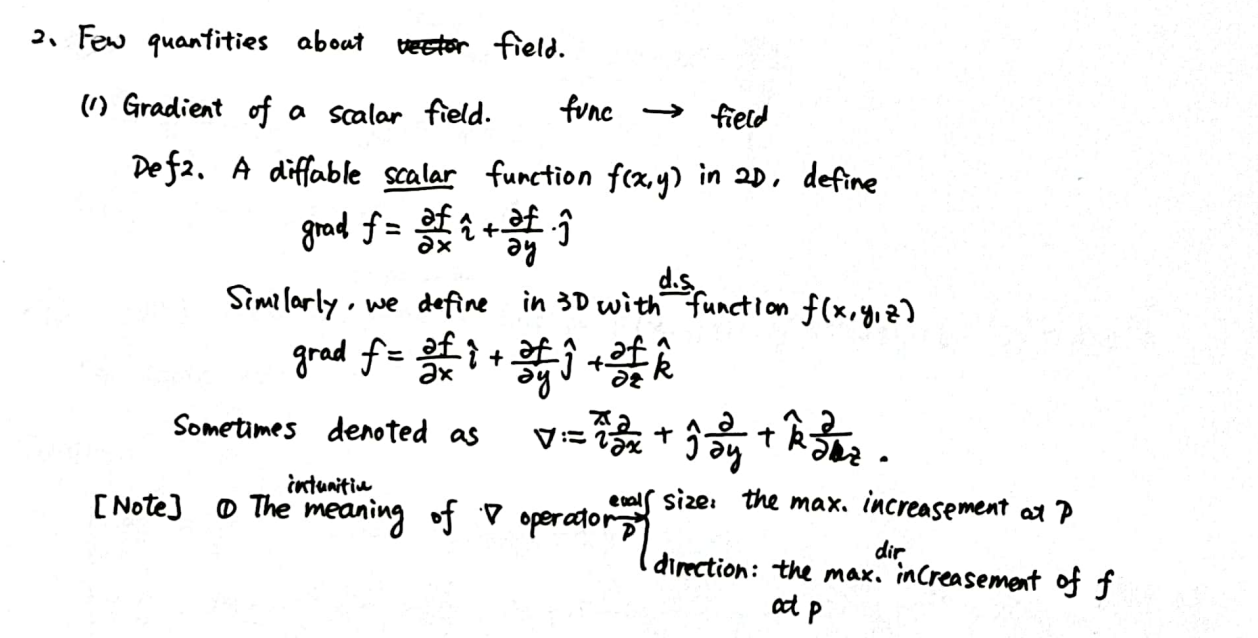 2、Few quantities about vector field.
(1) Gradient of a scalar field. func → field
Def2. A diffable scalar function f(x,y) in 2D, define
grad f = ∂f/∂x î + ∂f/∂y · ĵ
Similarly, we define in 3D with d.s. function f(x,y,z)
grad f = ∂f/∂x î + ∂f/∂y ĵ + ∂f/∂z k̂
Sometimes denoted as ∇ := î ∂/∂x + ĵ ∂/∂y + k̂ ∂/∂z .
[Note] ① The intuitive meaning of ∇ operator P size: the max. increasement at P
direction: the max. dir increasement of f
at p